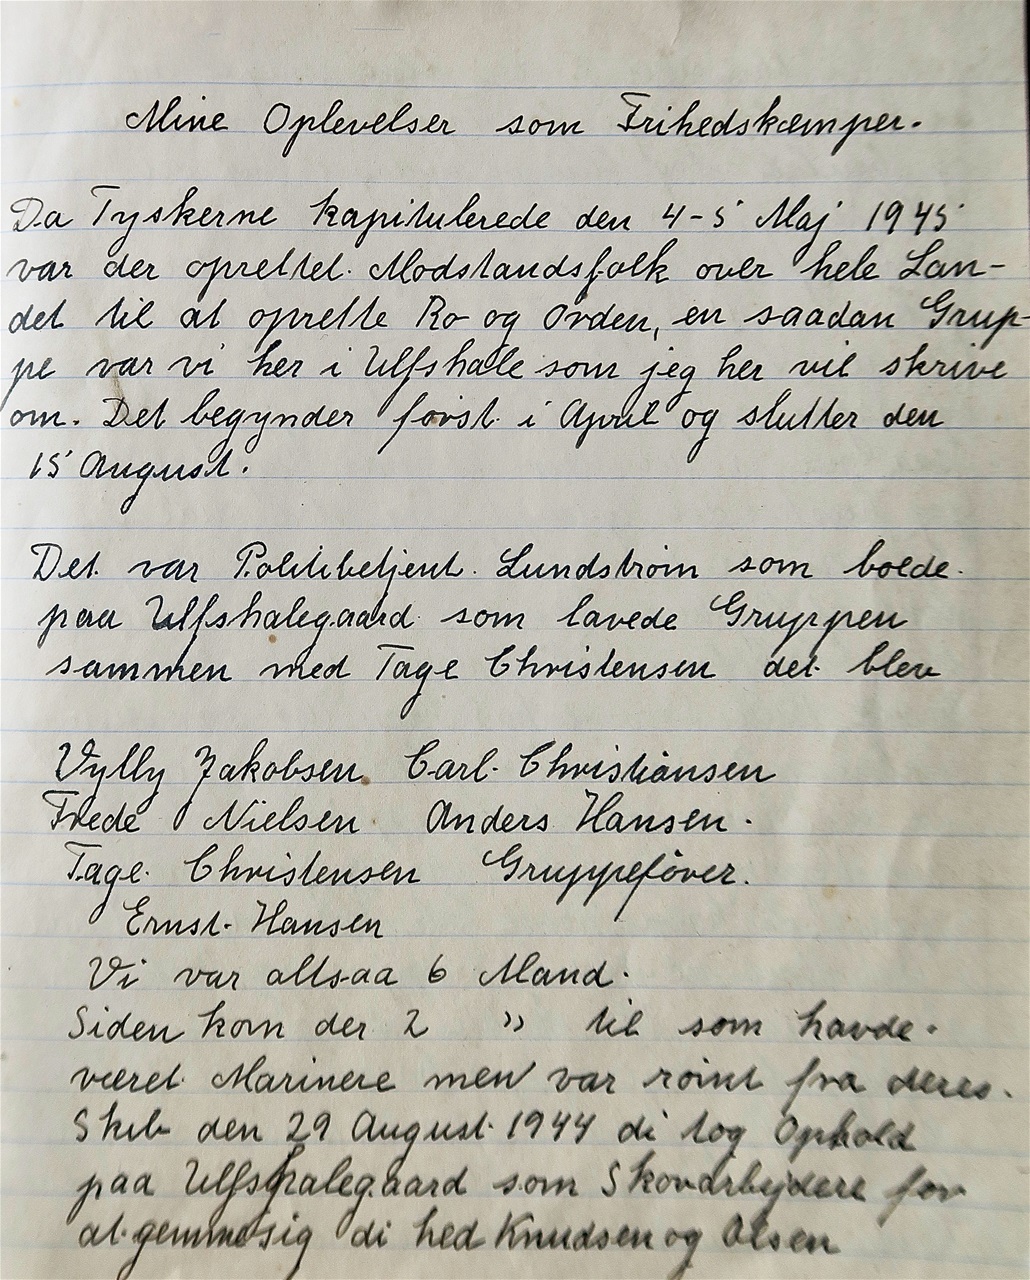 Mine Oplevelser som Frihedskæmper.
Da Tyskerne kapitulerede den 4-5 Maj 1945
var der oprettet Modstandsfolk over hele Lan-
det til at oprette Ro og Orden, en saadan Grup-
pe var vi her i Ulfshale som jeg her vil skrive
om. Det begynder først i April og slutter den
15 August.
Det var Politibetjent Lundstrøm som boede
paa Ulfshalegaard som lavede Gruppen
sammen med Tage Christensen det blev
Vylly Jakobsen Carl Christiansen
Frede Nielsen Anders Hansen.
Tage Christensen Gruppefører.
Ernst Hansen
Vi var altsaa 6 Mand.
Siden kom der 2 " til som havde
været Marinere men var rømt fra deres
Skib den 29 August 1944 di tog Ophold
paa Ulfshalegaard som Skovarbejdere for
at gemme sig di hed Knudsen og Olsen